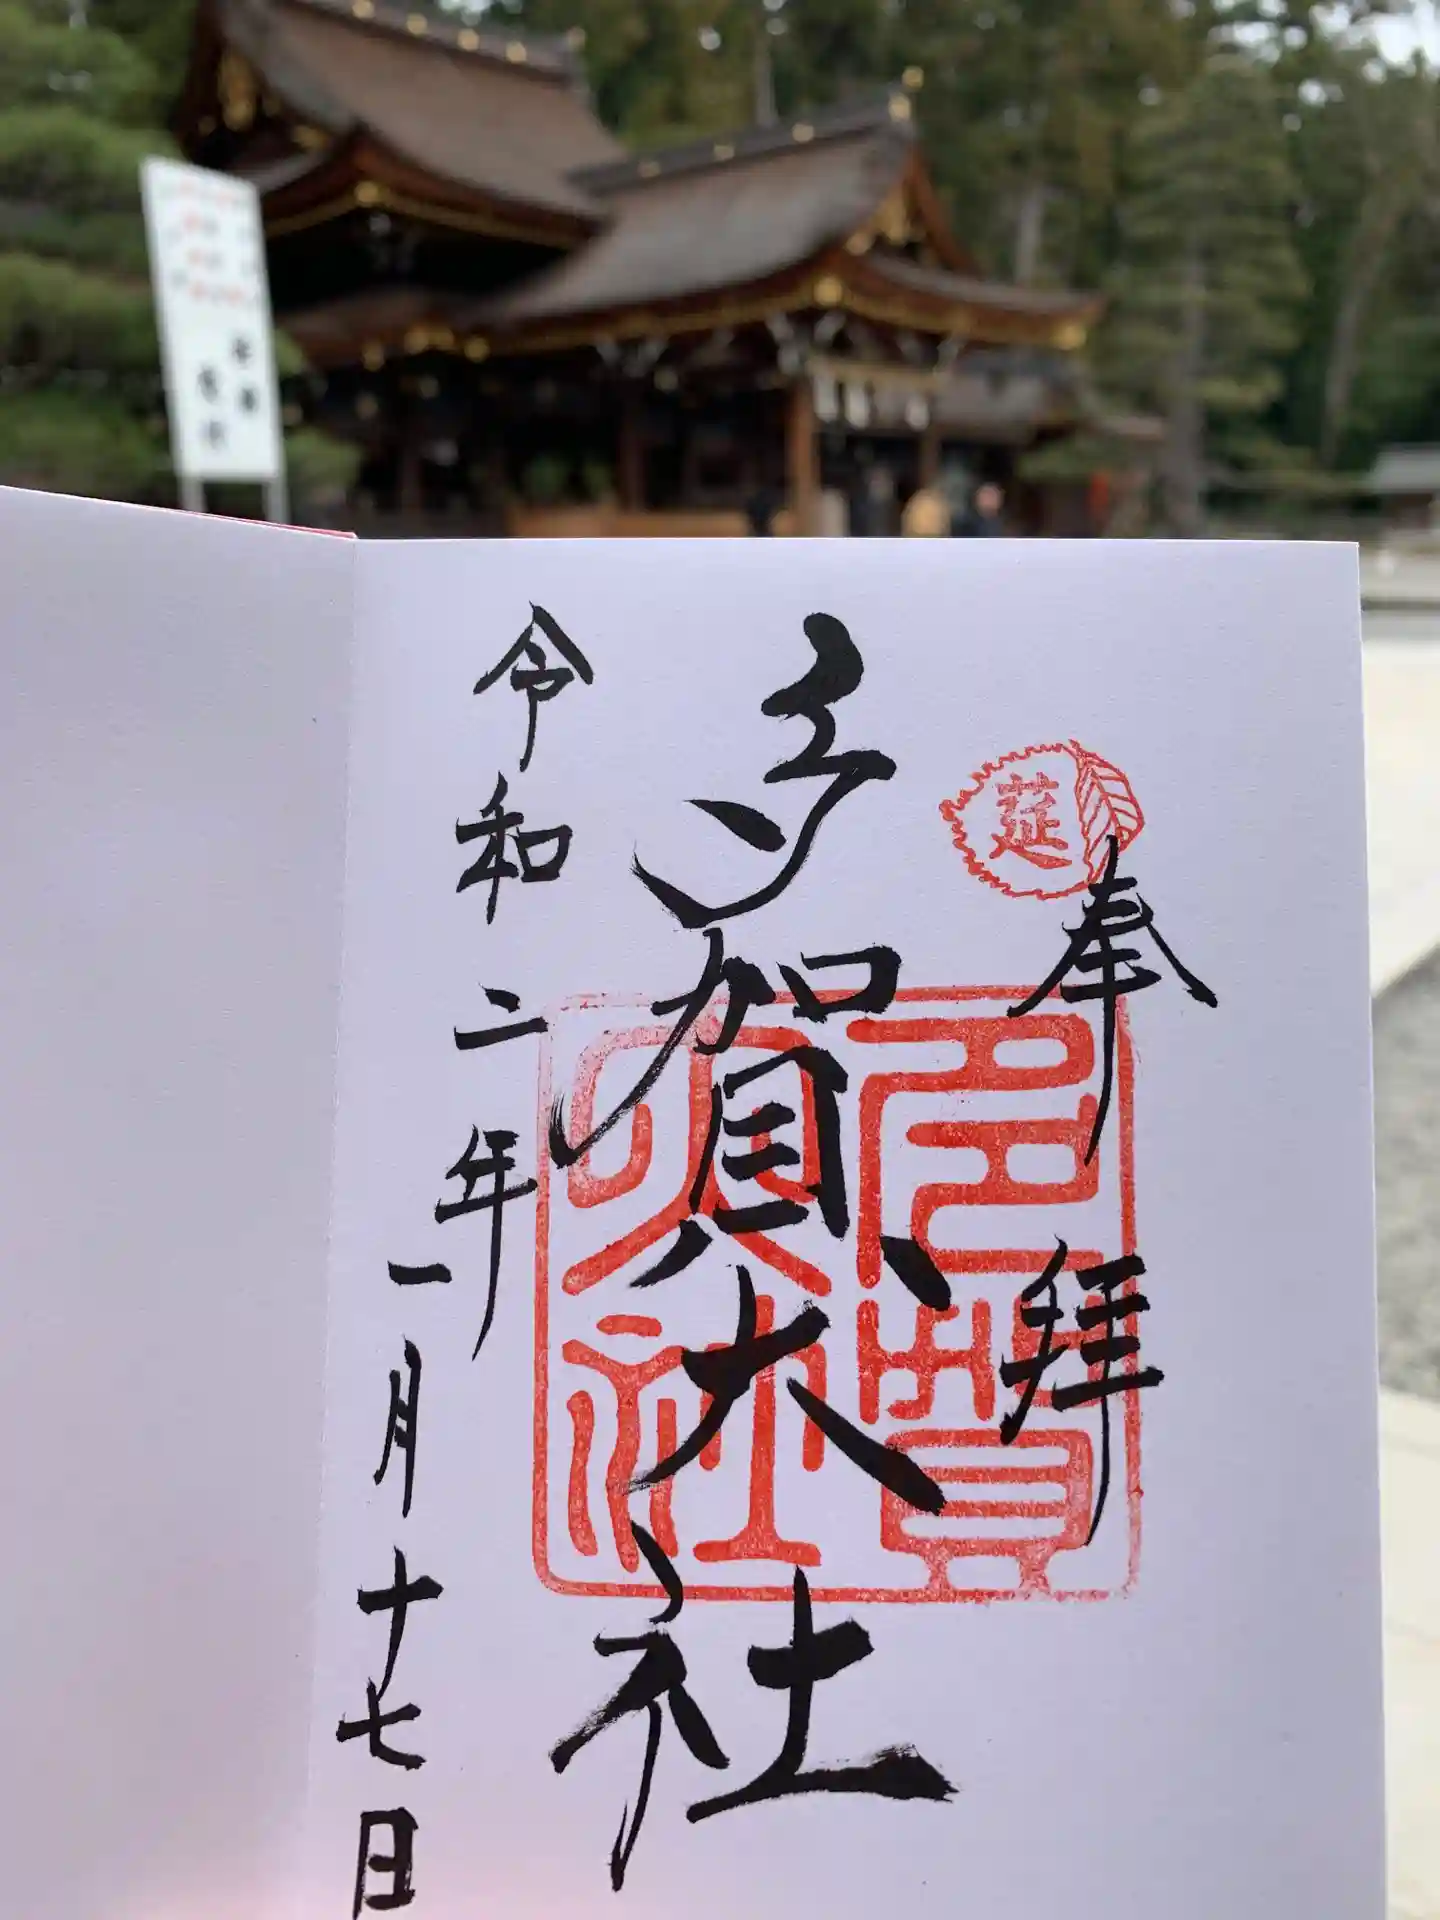 莚
奉拝
多賀大社
多賀大社
令和二年一月十七日